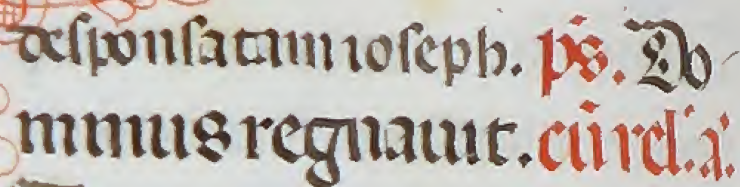 desponsatam ioseph. ps̄. Do
minus regnauit. cū rel̄. a͛.